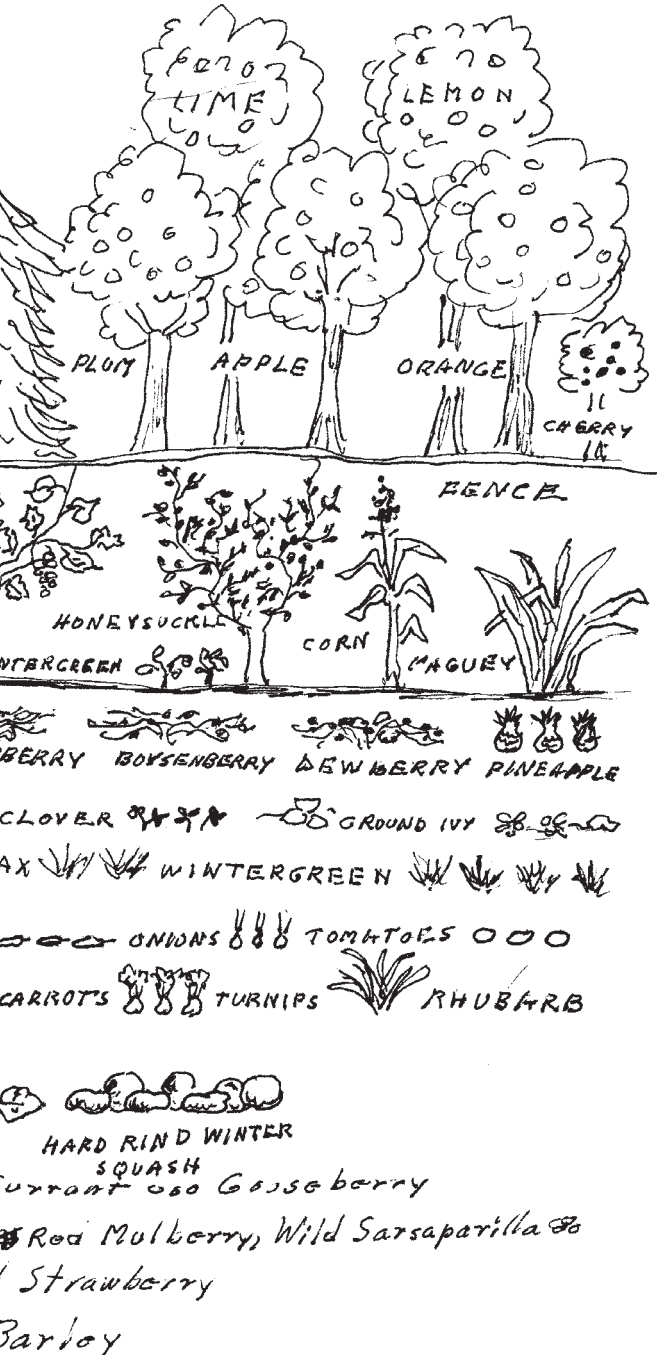 LIME LEMON
PLUM APPLE ORANGE
CHERRY
FENCE
HONEYSUCKLE
CORN
NTERGREEN MAGUEY
BERRY BOYSENBERRY DEWBERRY PINEAPPLE
CLOVER GROUND IVY
AX WINTERGREEN
ONIONS TOMATOES
CARROTS TURNIPS RHUBARB
HARD RIND WINTER
SQUASH
urrant Gooseberry
Red Mulberry, Wild Sarsaparilla
Strawberry
Barley